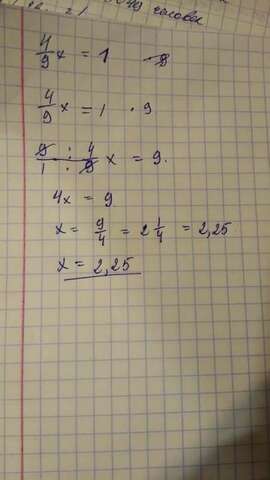 человек
4/9 x = 1
4/9 x = 1 · 9
9/1 · 4/9 x = 9.
4x = 9
x = 9/4 = 2 1/4 = 2,25
x = 2,25